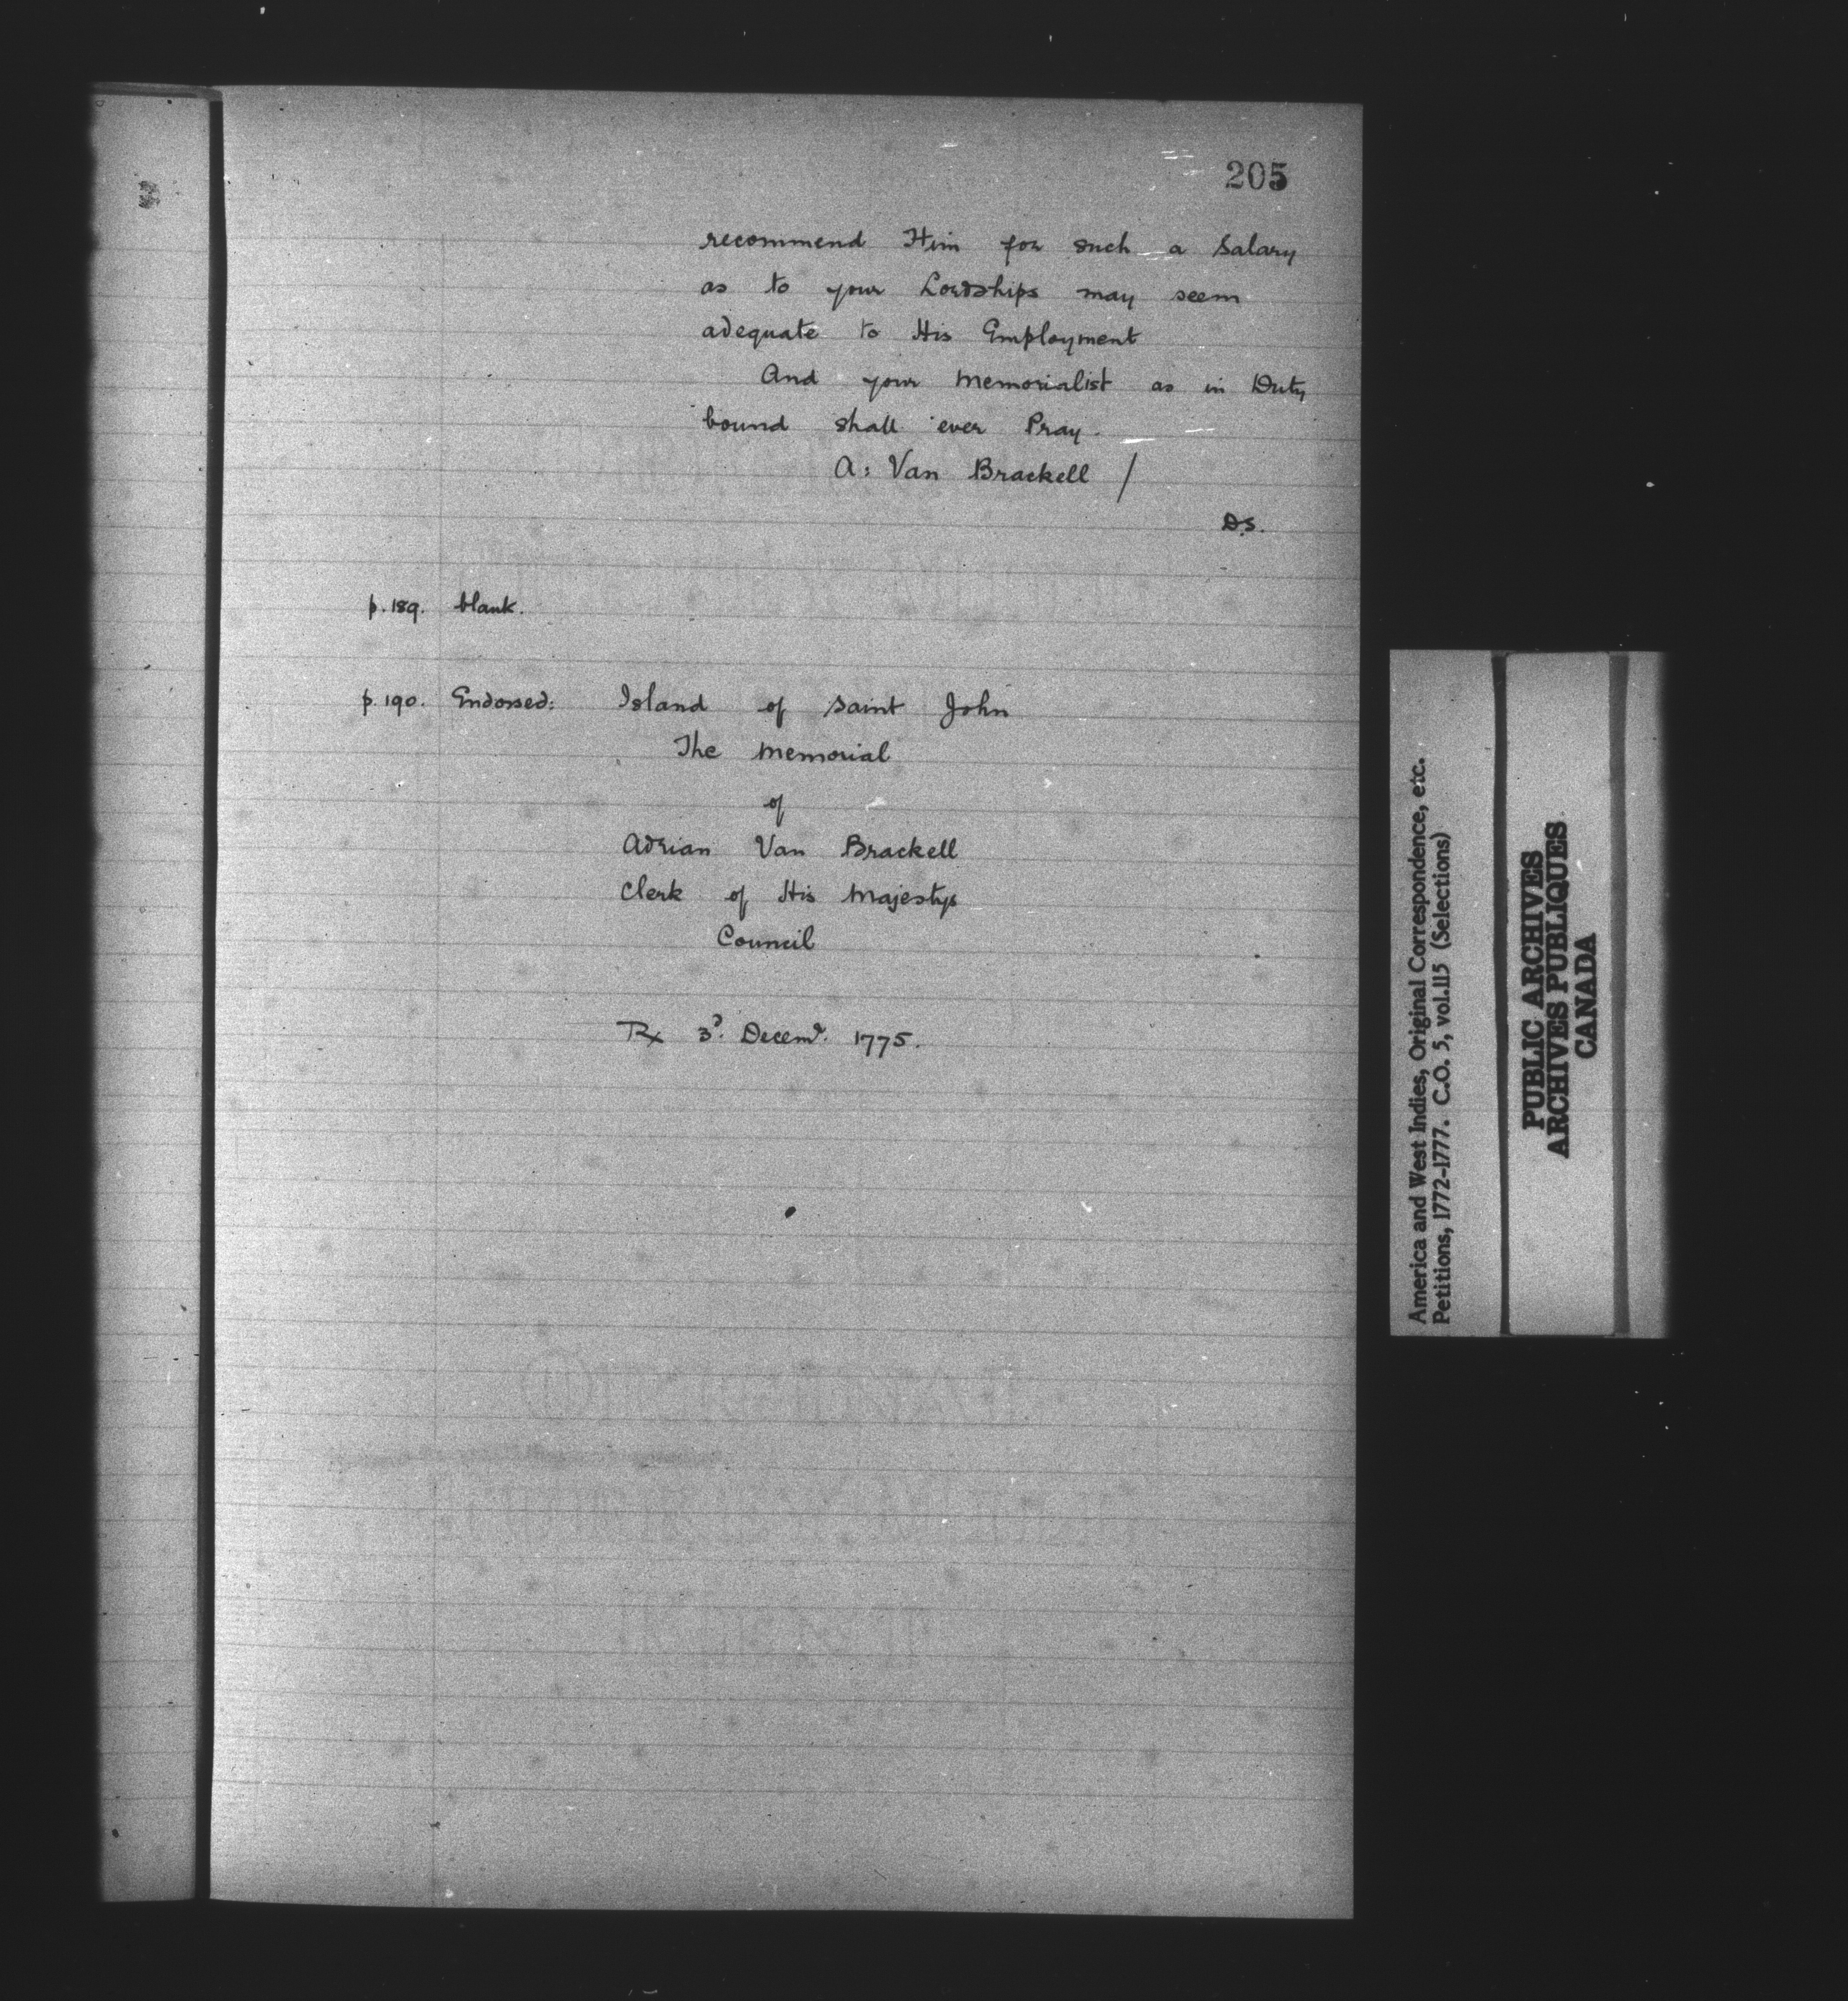 205
recommend Him for such a Salary
as to your Lordships may seem
adequate to His Employment
And your Memorialist as in Duty
bound shall ever Pray.
A: Van Brackell /
D.S.
p. 189. blank.
p. 190. Endorsed: Island of Saint John
The Memorial
of
Adrian Van Brackell
Clerk of His Majestys
Council
Rx 3d. Decemr. 1775.
America and West Indies, Original Correspondence, etc.
Petitions, 1772-1777. C.O. 5, vol.115 (Selections)
PUBLIC ARCHIVES
ARCHIVES PUBLIQUES
CANADA